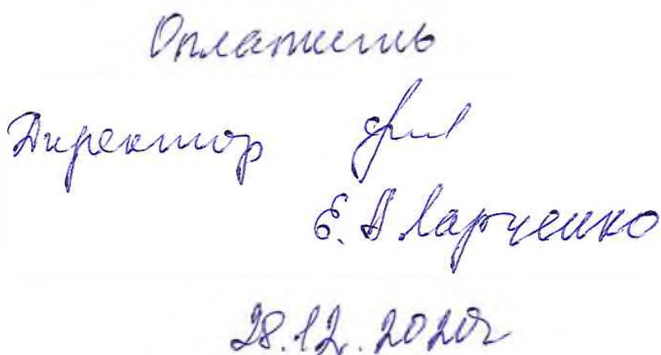 Оплатить
Директор
Е. А Ларченко
28.12.2020г